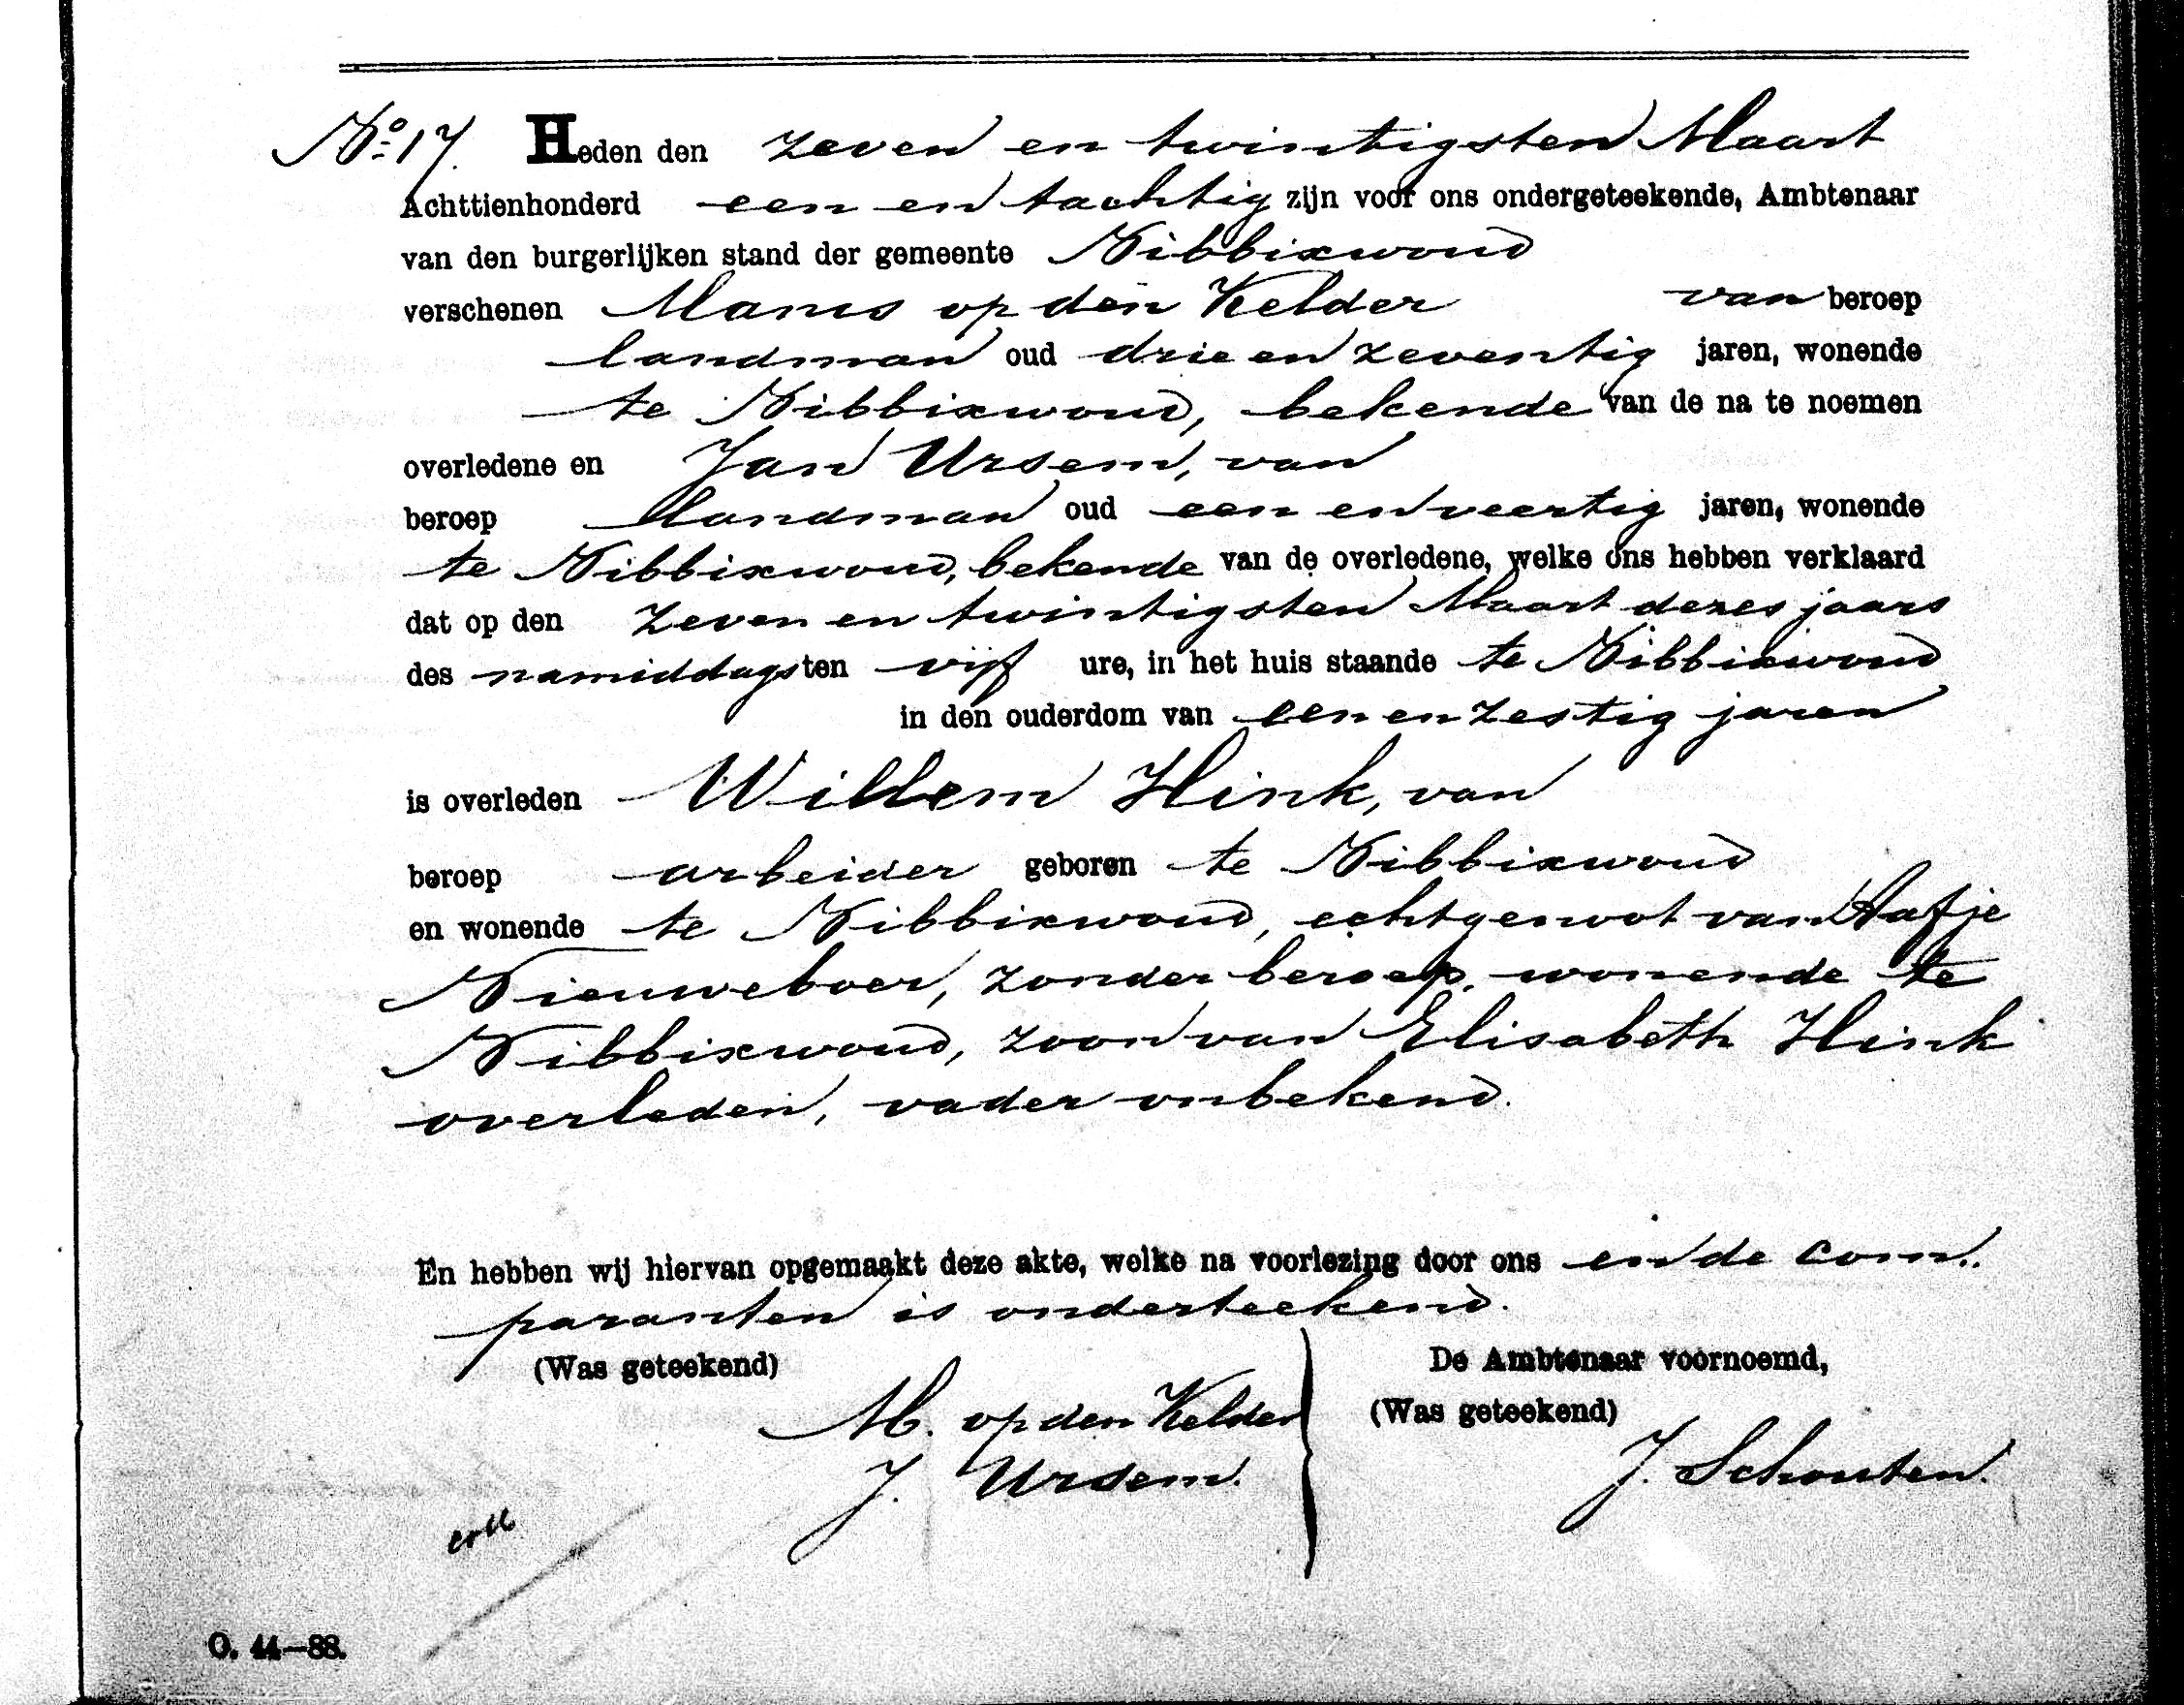 No: 17. Heden den zeven en twintigsten Maart
Achttienhonderd een en tachtig zijn voor ons ondergeteekende, Ambtenaar
van den burgerlijken stand der gemeente Nibbixwoud
verschenen Manus op den Kelder van beroep
landman oud drie en zeventig jaren, wonende
te Nibbixwoud, bekende van de na te noemen
overledene en Jan Ursem, van
beroep landman oud een en veertig jaren, wonende
te Nibbixwoud, bekende van de overledene, welke ons hebben verklaard
dat op den zeven en twintigsten Maart dezes jaars
des namiddags ten vijf ure, in het huis staande te Nibbixwoud
in den ouderdom van een en zestig jaren
is overleden Willem Hink, van
beroep arbeider geboren te Nibbixwoud
en wonende te Nibbixwoud, echtgenoot van Aafje
Nieuweboer, zonder beroep, wonende te
Nibbixwoud, zoon van Elisabeth Hink
overleden, vader onbekend.
En hebben wij hiervan opgemaakt deze akte, welke na voorlezing door ons en de com.
paranten is onderteekend.
(Was geteekend) De Ambtenaar voornoemd,
M. op den Kelder (Was geteekend)
J. Ursem. J. Schouten.
coll
O. 44—88.